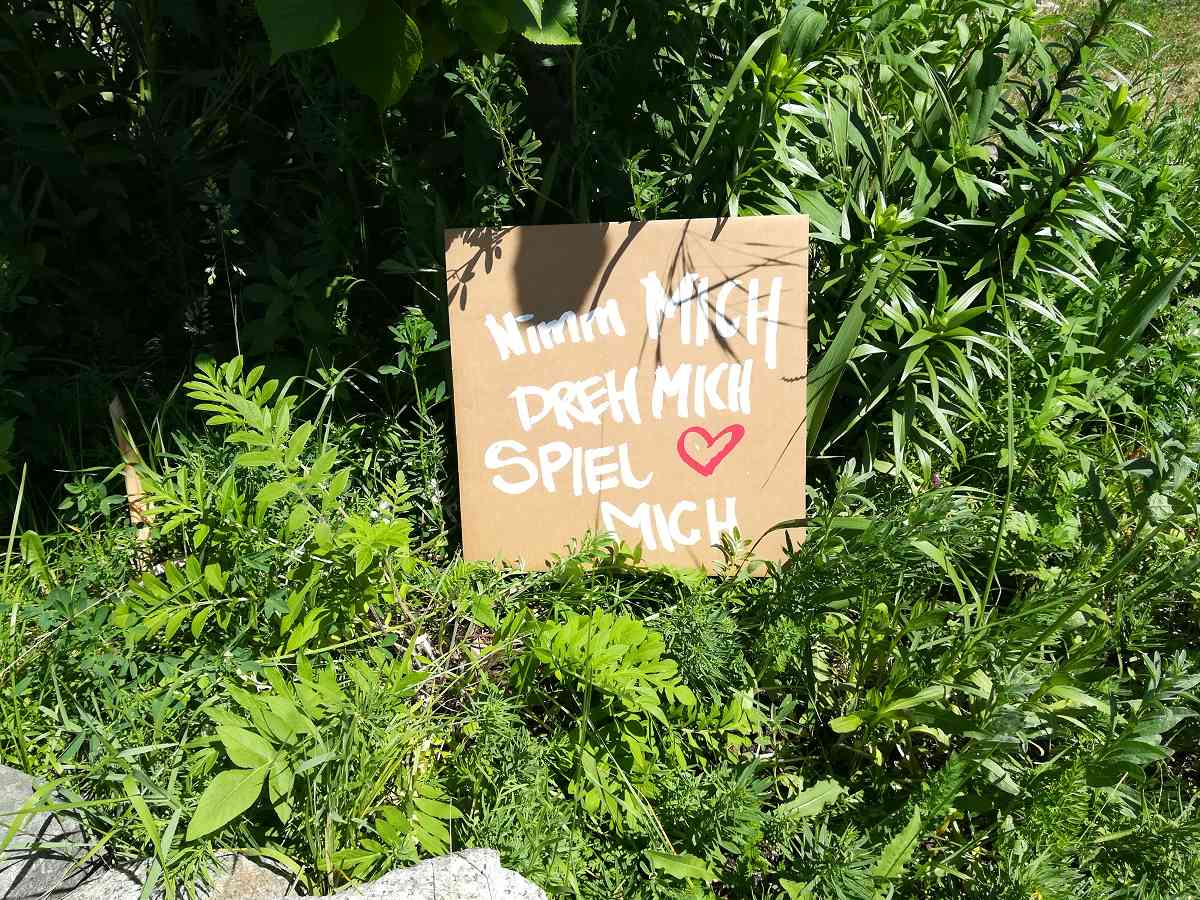 Nimm MICH
DREH MICH
SPIEL
MICH